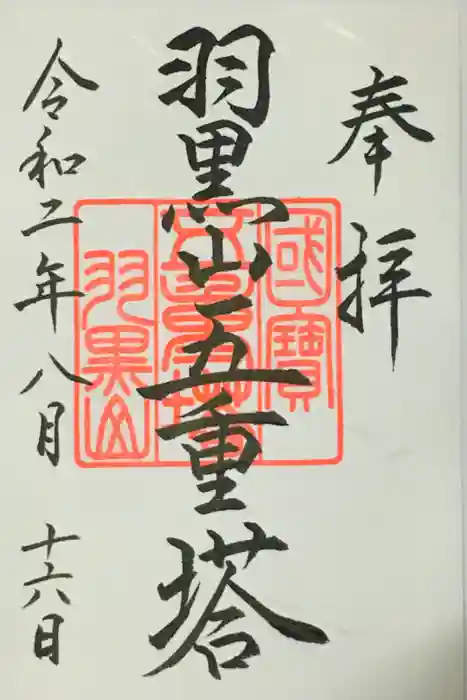 奉拝
羽黒山五重塔
令和二年八月十六日
國寶
羽黒山